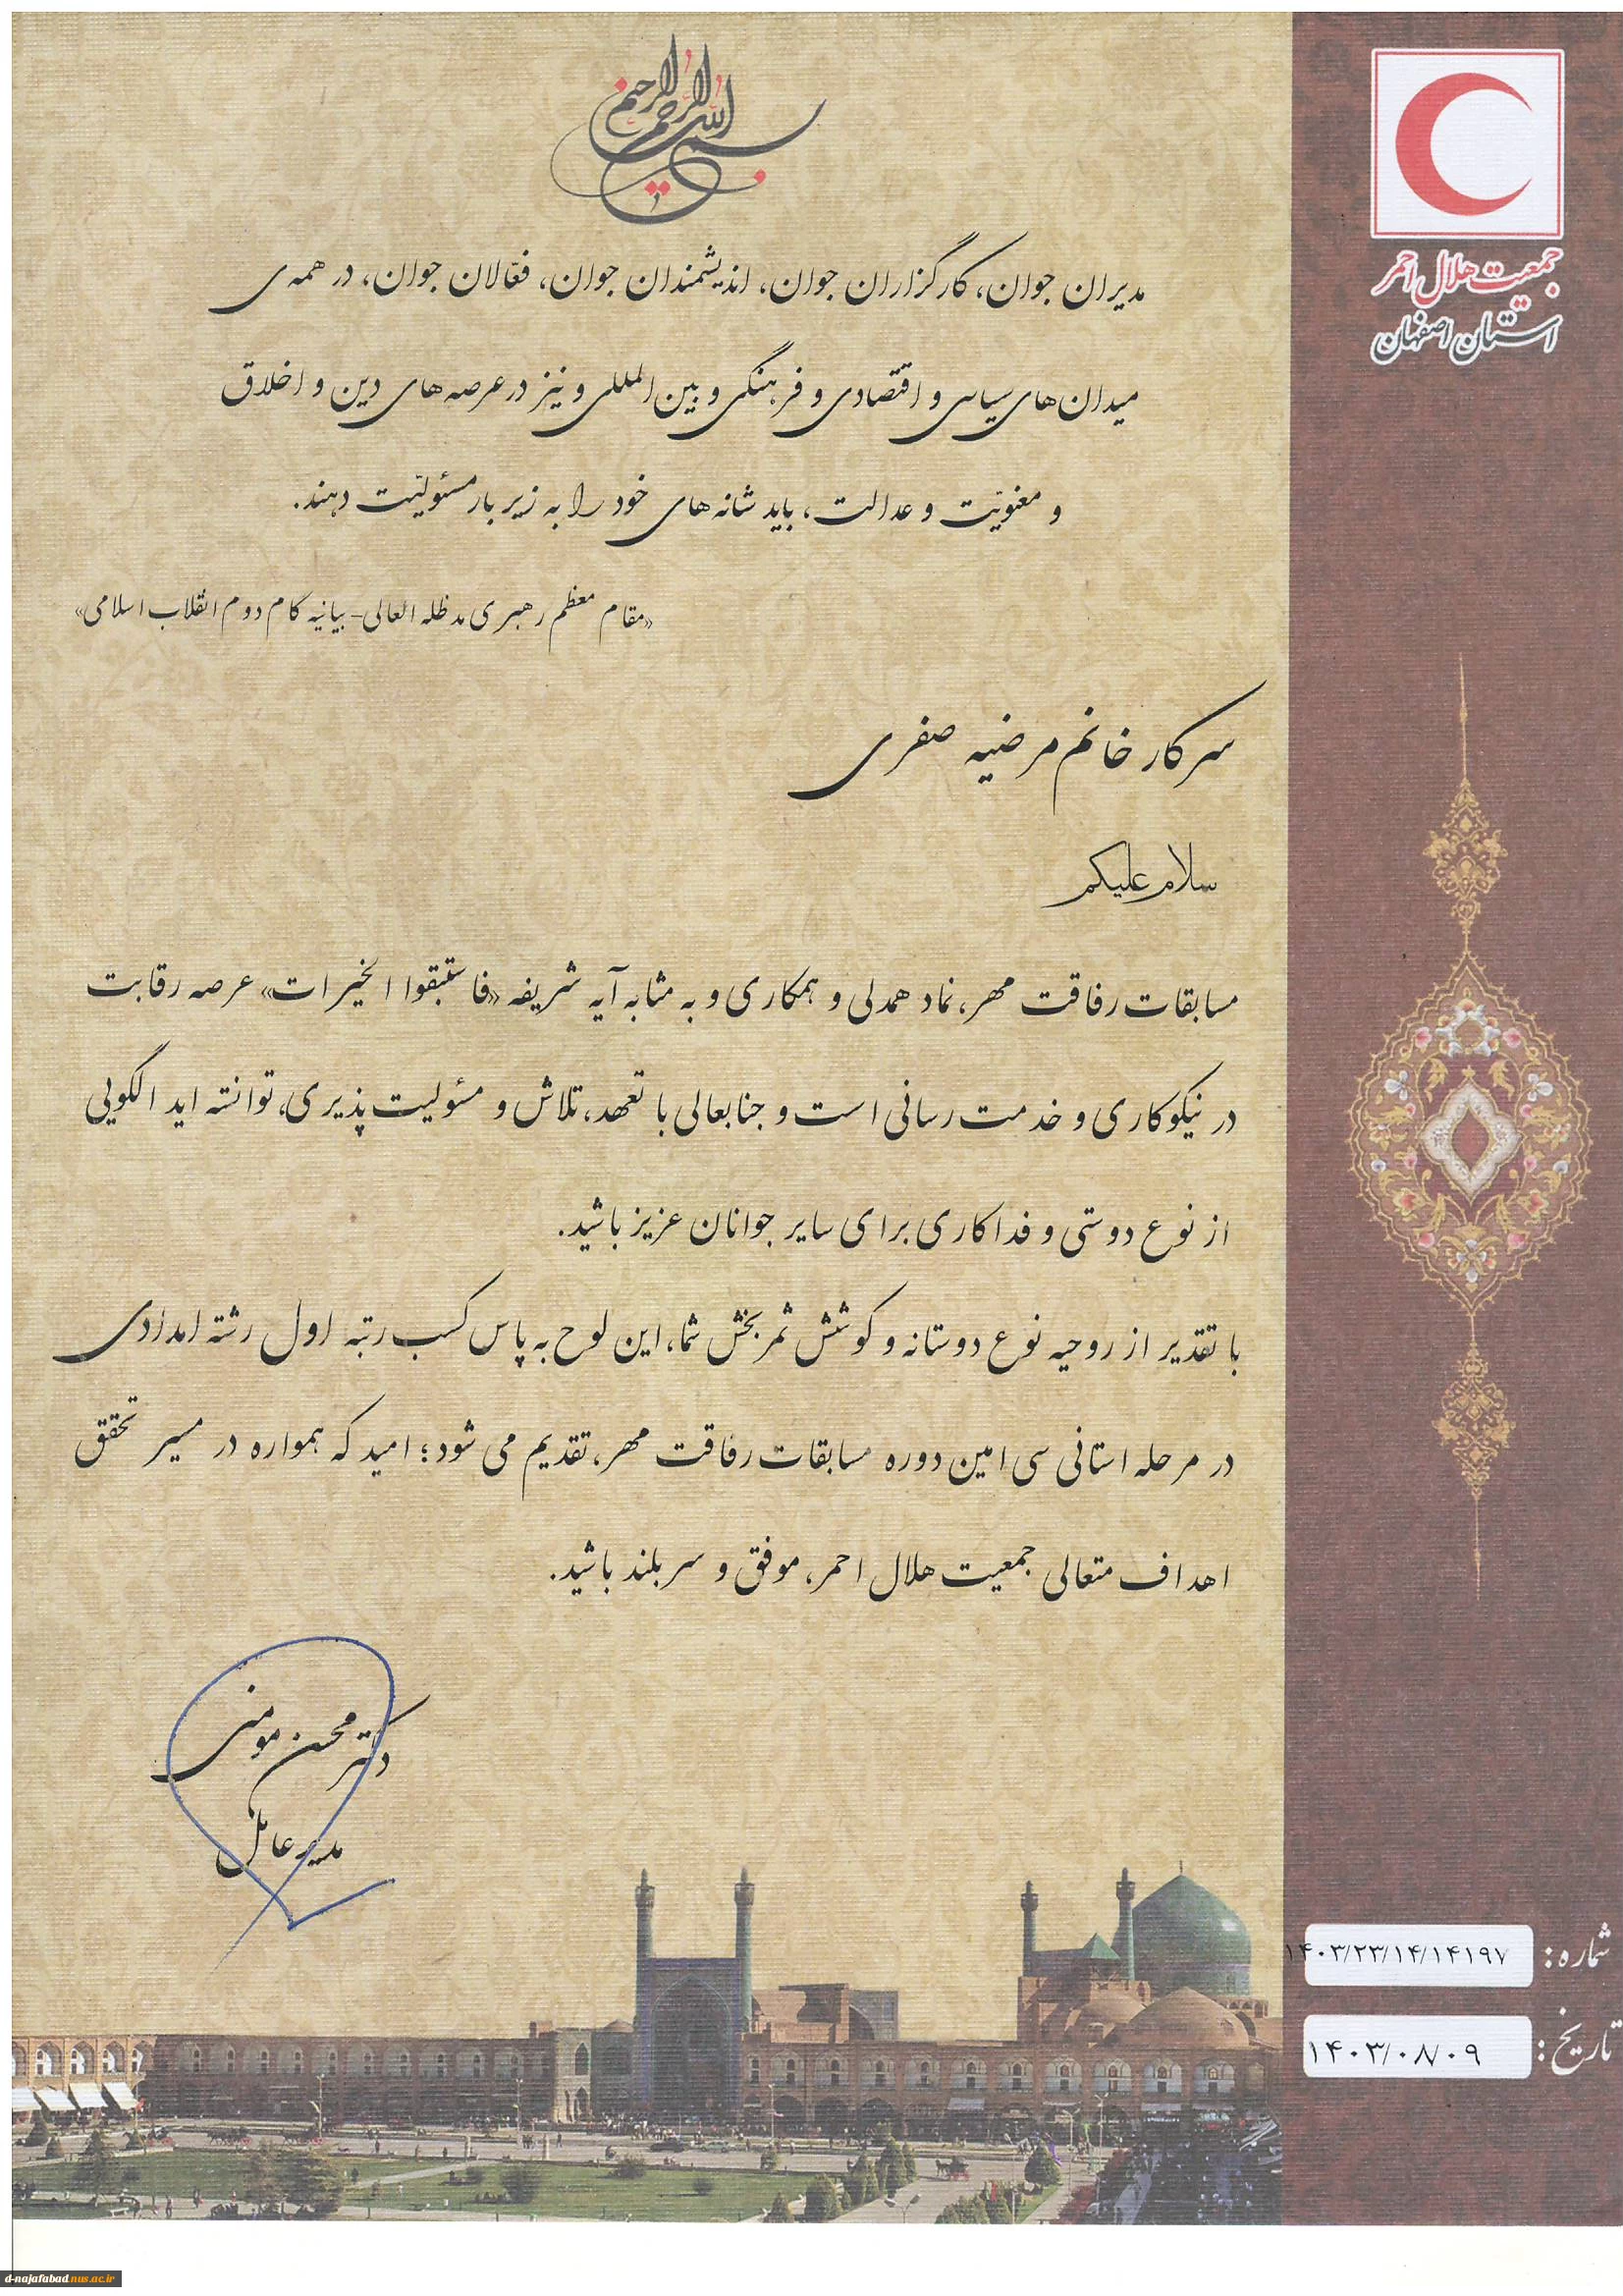 بسم الله الرحمن الرحیم
جمعیت هلال احمر
استان اصفهان
مدیران جوان، کارگزاران جوان، اندیشمندان جوان، فعّالان جوان، در همه‌ی
میدان‌های سیاسی و اقتصادی و فرهنگی و بین‌المللی و نیز در عرصه‌های دین و اخلاق
و معنویّت و عدالت، باید شانه‌های خود را به زیر بار مسئولیّت دهند.
«مقام معظم رهبری مدظله العالی- بیانیه گام دوم انقلاب اسلامی»
سرکار خانم مرضیه صفری
سلام علیکم
مسابقات رفاقت مهر، نماد همدلی و همکاری و به مثابه آیه شریفه «فاستبقوا الخیرات» عرصه رقابت
در نیکوکاری و خدمت رسانی است و جنابعالی با تعهد، تلاش و مسئولیت پذیری، توانسته اید الگویی
از نوع دوستی و فداکاری برای سایر جوانان عزیز باشید.
با تقدیر از روحیه نوع دوستانه و کوشش ثمربخش شما، این لوح به پاس کسب رتبه اول رشته امدادی
در مرحله استانی سی امین دوره مسابقات رفاقت مهر، تقدیم می شود؛ امید که همواره در مسیر تحقق
اهداف متعالی جمعیت هلال احمر، موفق و سربلند باشید.
دکتر محسن مومنی
مدیر عامل
شماره: ۱۴۰۳/۲۳/۱۴/۱۴۱۹۷
تاریخ: ۱۴۰۳/۰۸/۰۹
d-najafabad.nus.ac.ir